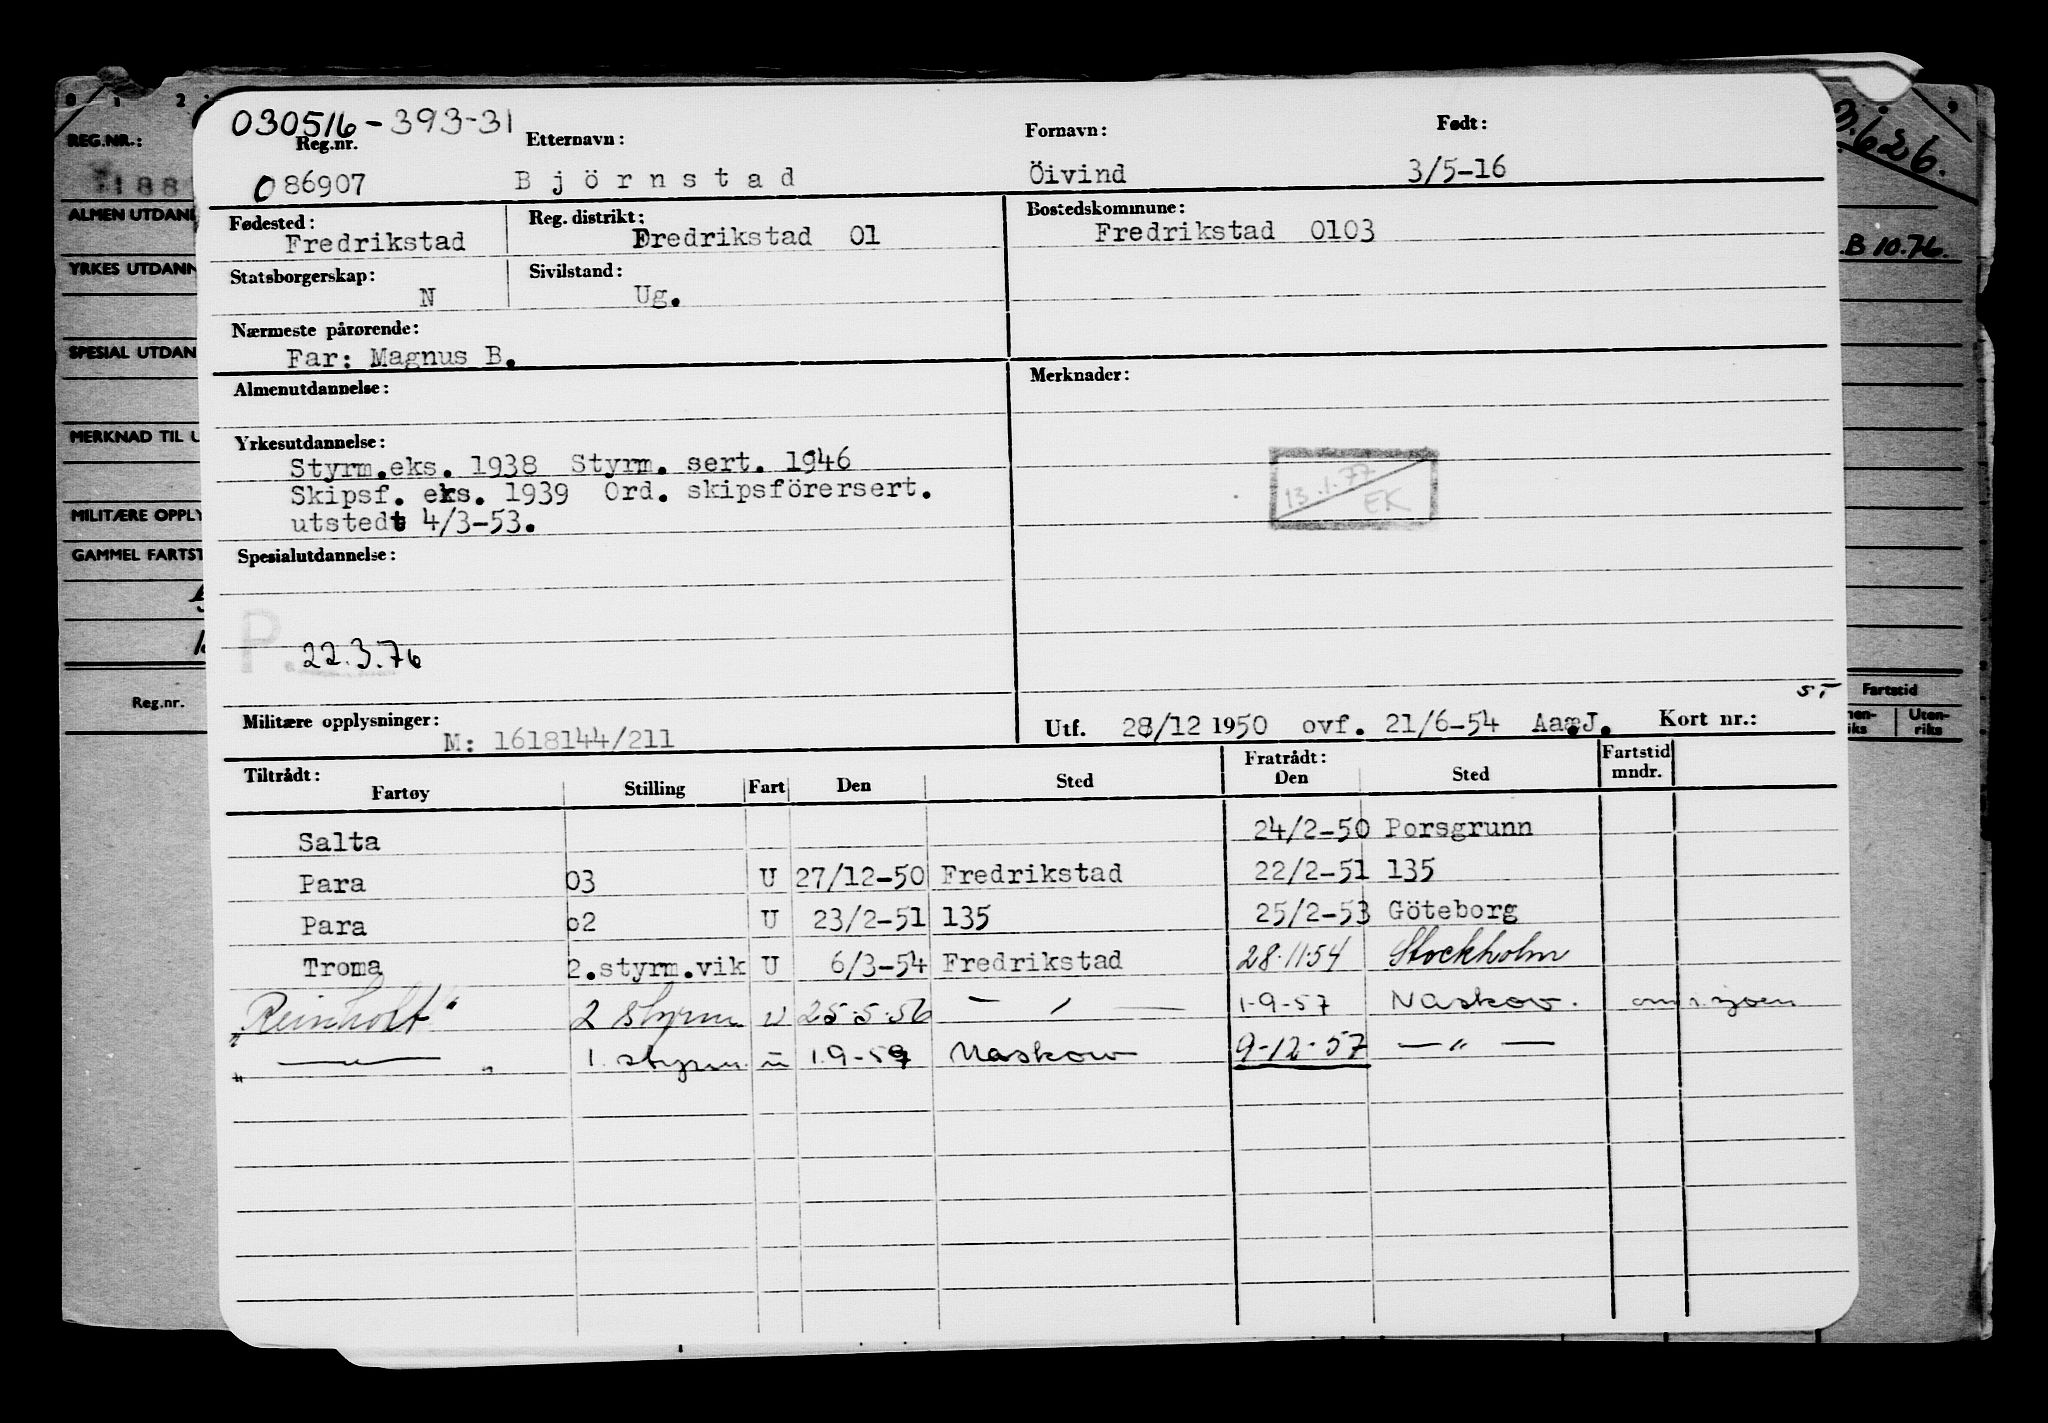 030516-393-31
Reg.nr. Etternavn: Fornavn: Født:
086907 Björnstad Öivind 3/5-16
Fødested: Reg. distrikt: Bostedskommune:
Fredrikstad Fredrikstad 01 Fredrikstad 0103
Statsborgerskap: Sivilstand:
N Ug.
Nærmeste pårørende:
Far: Magnus B.
Almenutdannelse: Merknader:
Yrkesutdannelse:
Styrm.eks. 1938 Styrm. sert. 1946
Skipsf. eks. 1939 Ord. skipsförersert.
utstedt 4/3-53.
13.1.77
EK
Spesialutdannelse:
P. 22.3.76
Militære opplysninger:
M: 1618144/211
Utf. 28/12 1950 ovf. 21/6-54 Aa.J. Kort nr.:
Tiltrådt: Fratrådt: Fartstid
Fartøy Stilling Fart Den Sted Den Sted mndr.
Salta 24/2-50 Porsgrunn
Para 03 U 27/12-50 Fredrikstad 22/2-51 135
Para o2 U 23/2-51 135 25/2-53 Göteborg
Troma 2.styrm.vik U 6/3-54 Fredrikstad 28.11.54 Stockholm
"Reinholt" 2 styrm u 25.5.56 — 1-9-57 Naskov.
" — " 1. styrm. u 1.9-57 Naskow 9-12-57 — " —
REG.NR.:
ALMEN UTDAN
YRKES UTDANN
SPESIAL UTDAN
MERKNAD TIL U
MILITÆRE OPPLY
GAMMEL FARTST
Reg.nr.
3.626.
B 10.76.
Fartstid
nen- Uten-
iks riks